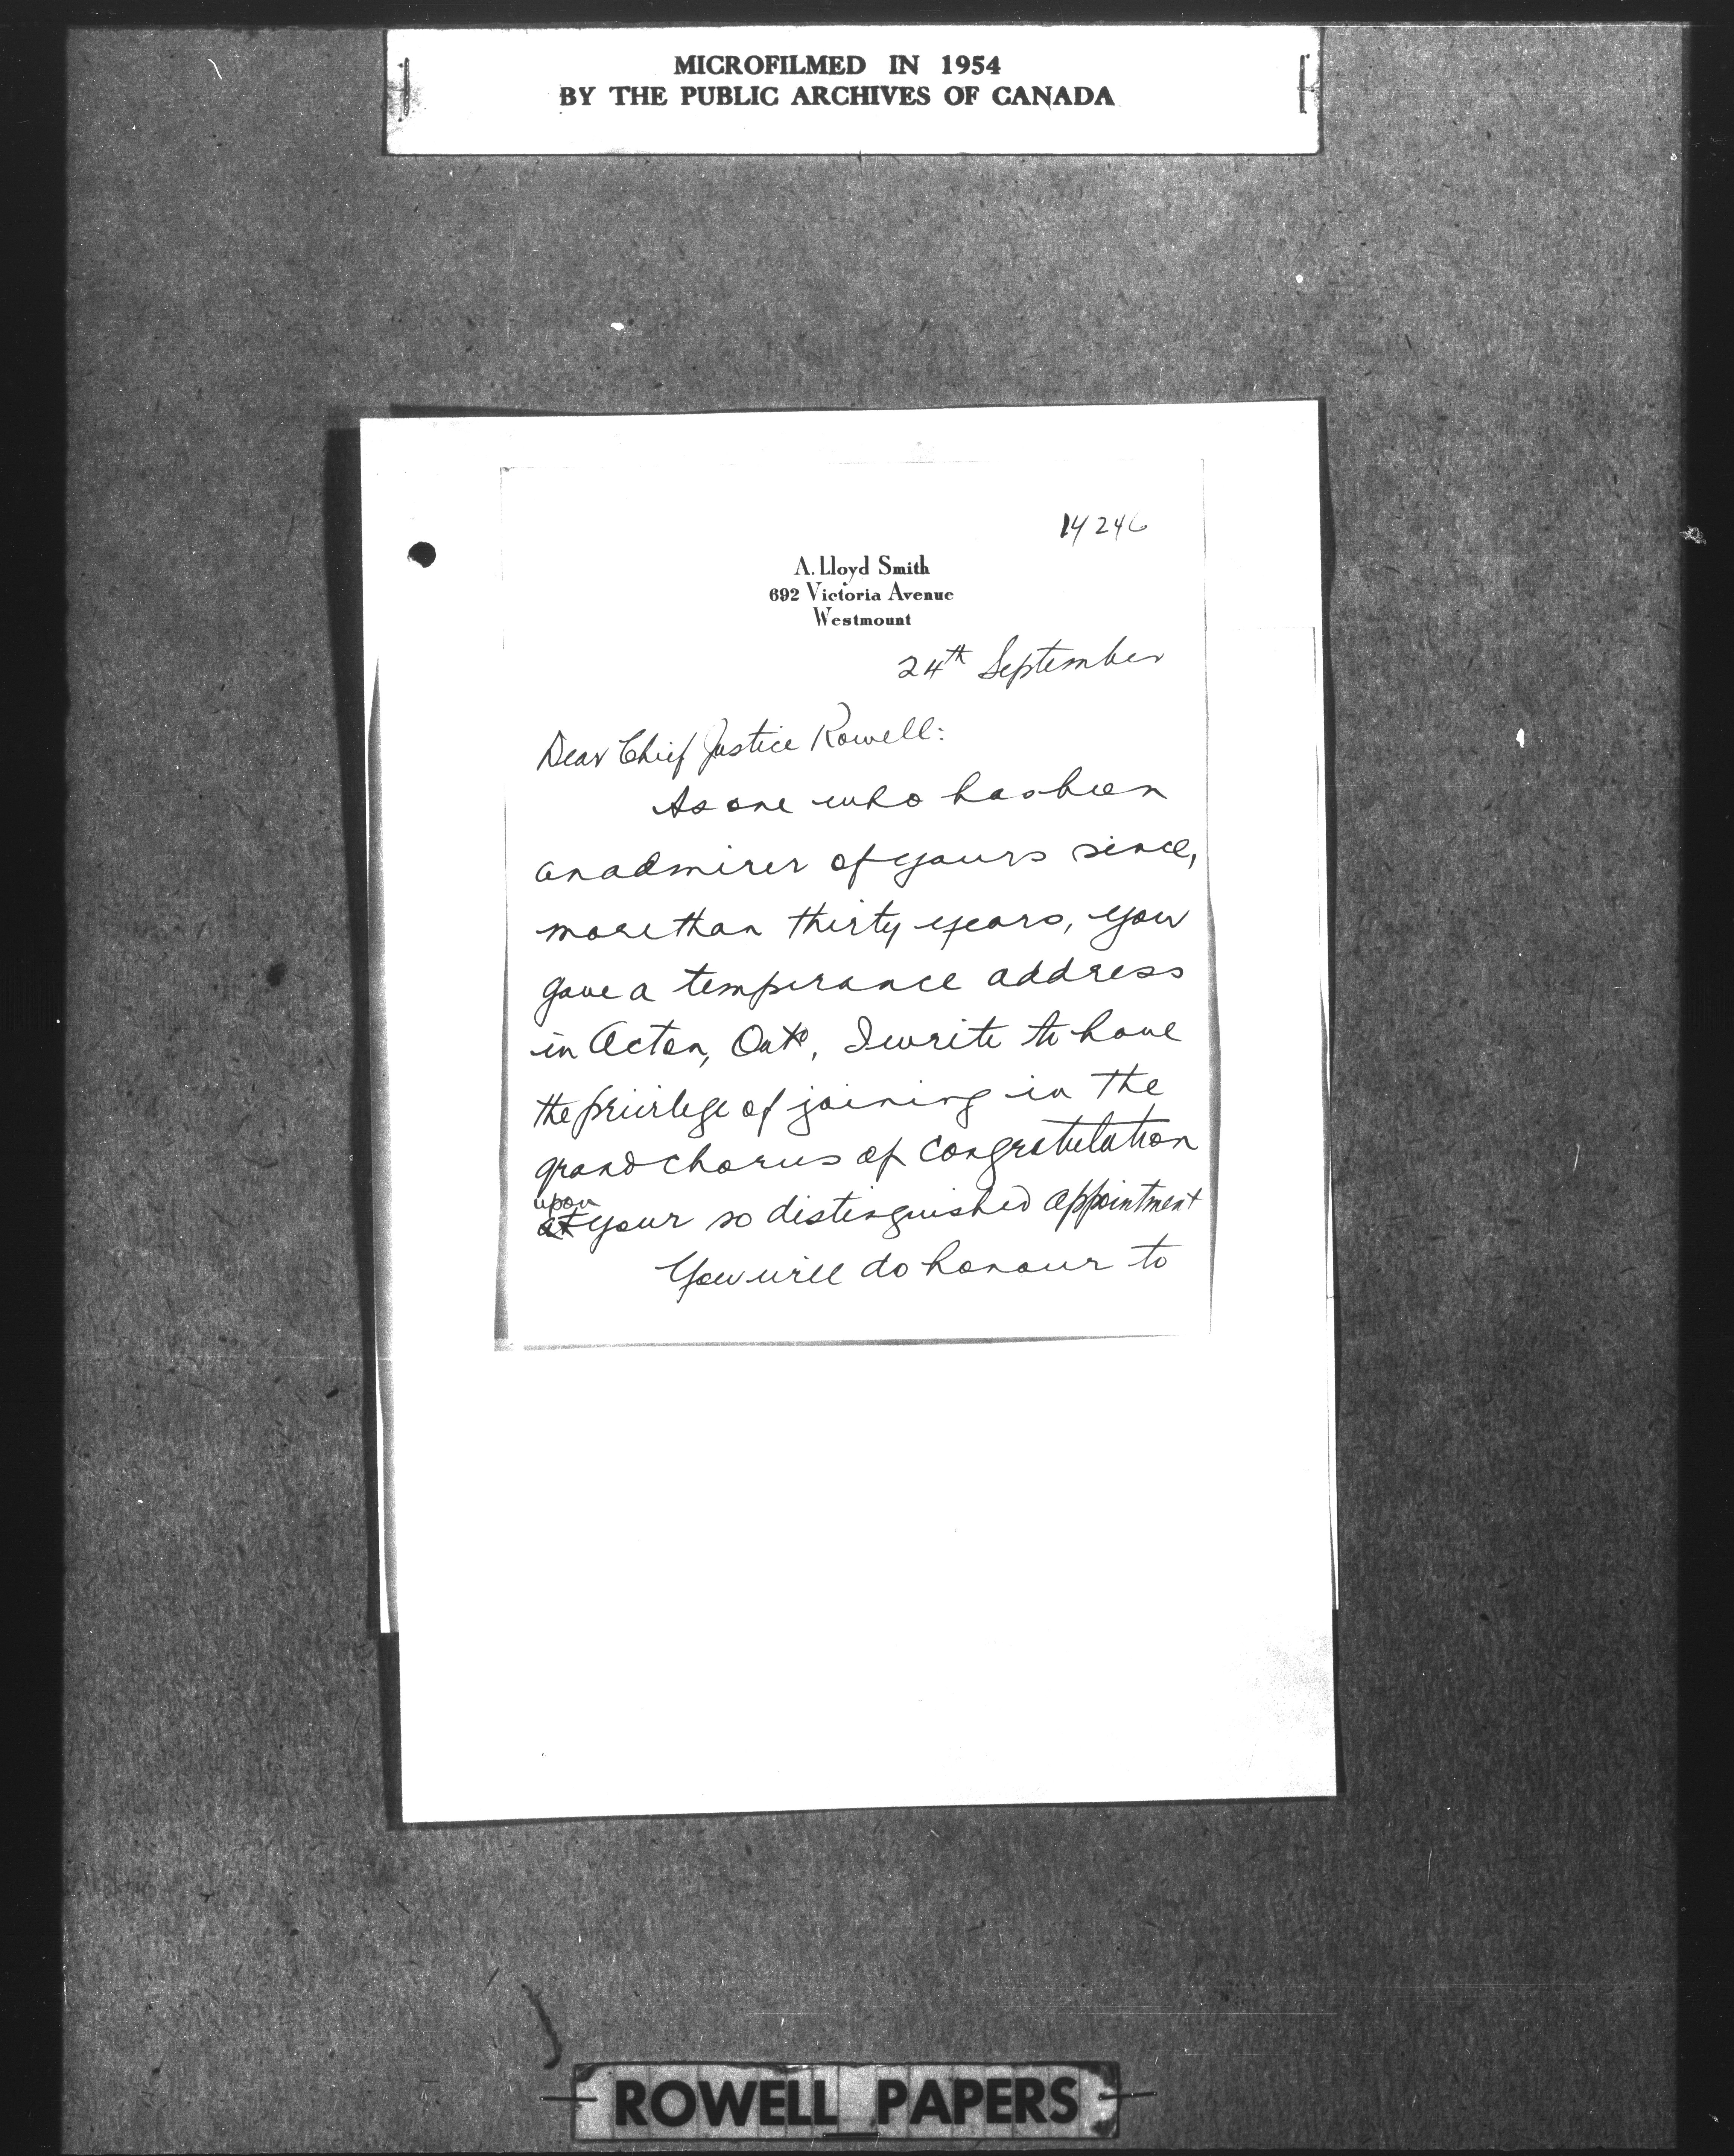 MICROFILMED IN 1954
BY THE PUBLIC ARCHIVES OF CANADA
14246
A. Lloyd Smith
692 Victoria Avenue
Westmount
24th September
Dear Chief Justice Rowell:
As one who has been
an admirer of yours since,
more than thirty years, you
gave a temperance address
in Acton, Onto, I write to have
the privilege of joining in the
grand chorus of congratulation
upon
at your so distinguished appointment
You will do honour to
ROWELL PAPERS